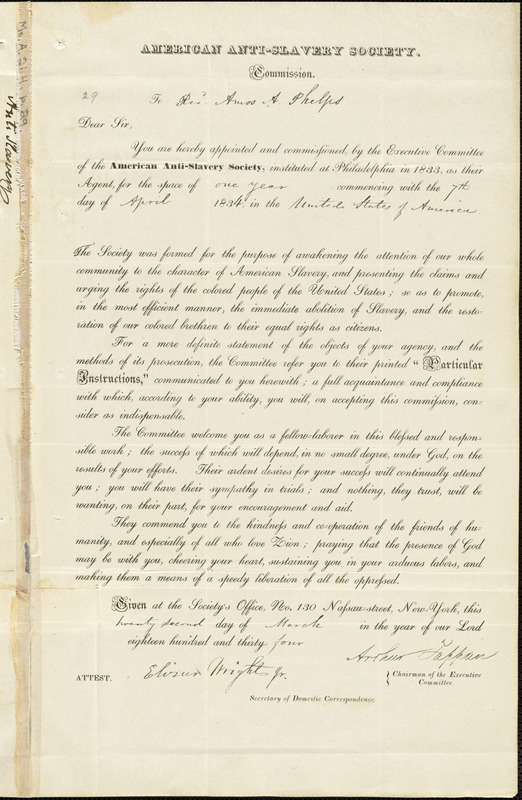 AMERICAN ANTI-SLAVERY SOCIETY.
Commission.
29
To Rev. Amos A. Phelps
Dear Sir,
You are hereby appointed and commissioned, by the Executive Committee
of the American Anti-Slavery Society, instituted at Philadelphia in 1833, as their
Agent, for the space of one year commencing with the 7th
day of April 1834, in the United States of America
The Society was formed for the purpose of awakening the attention of our whole
community to the character of American Slavery, and presenting the claims and
urging the rights of the colored people of the United States; so as to promote,
in the most efficient manner, the immediate abolition of Slavery, and the resto-
ration of our colored brethren to their equal rights as citizens.
For a more definite statement of the objects of your agency, and the
methods of its prosecution, the Committee refer you to their printed "Particular
Instructions," communicated to you herewith; a full acquaintance and compliance
with which, according to your ability, you will, on accepting this commiſsion, con-
sider as indispensable.
The Committee welcome you as a fellow-laborer in this bleſsed and respon-
sible work; the succeſs of which will depend, in no small degree, under God, on the
results of your efforts. Their ardent desires for your succeſs will continually attend
you; you will have their sympathy in trials; and nothing, they trust, will be
wanting, on their part, for your encouragement and aid.
They commend you to the kindneſs and co-operation of the friends of hu-
manity, and especially of all who love Zion; praying that the presence of God
may be with you, cheering your heart, sustaining you in your arduous labors, and
making them a means of a speedy liberation of all the oppreſsed.
Given at the Society's Office, No. 130 Naſsau-street, New-York, this
twenty second day of March in the year of our Lord
eighteen hundred and thirty four
Arthur Tappan
ATTEST. Elizur Wright Jr. Chairman of the Executive
Committee.
Secretary of Domestic Correspondence.
Anti Slavery